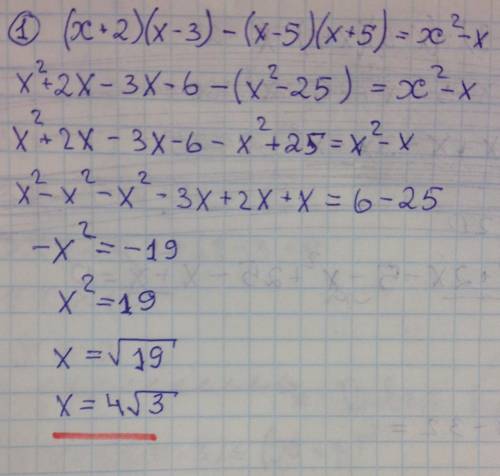 ① (x+2)(x-3)-(x-5)(x+5)=x²-x
x²+2x-3x-6-(x²-25)=x²-x
x²+2x-3x-6-x²+25=x²-x
x²-x²-x²-3x+2x+x=6-25
-x²=-19
x²=19
x=√19
x=4√3